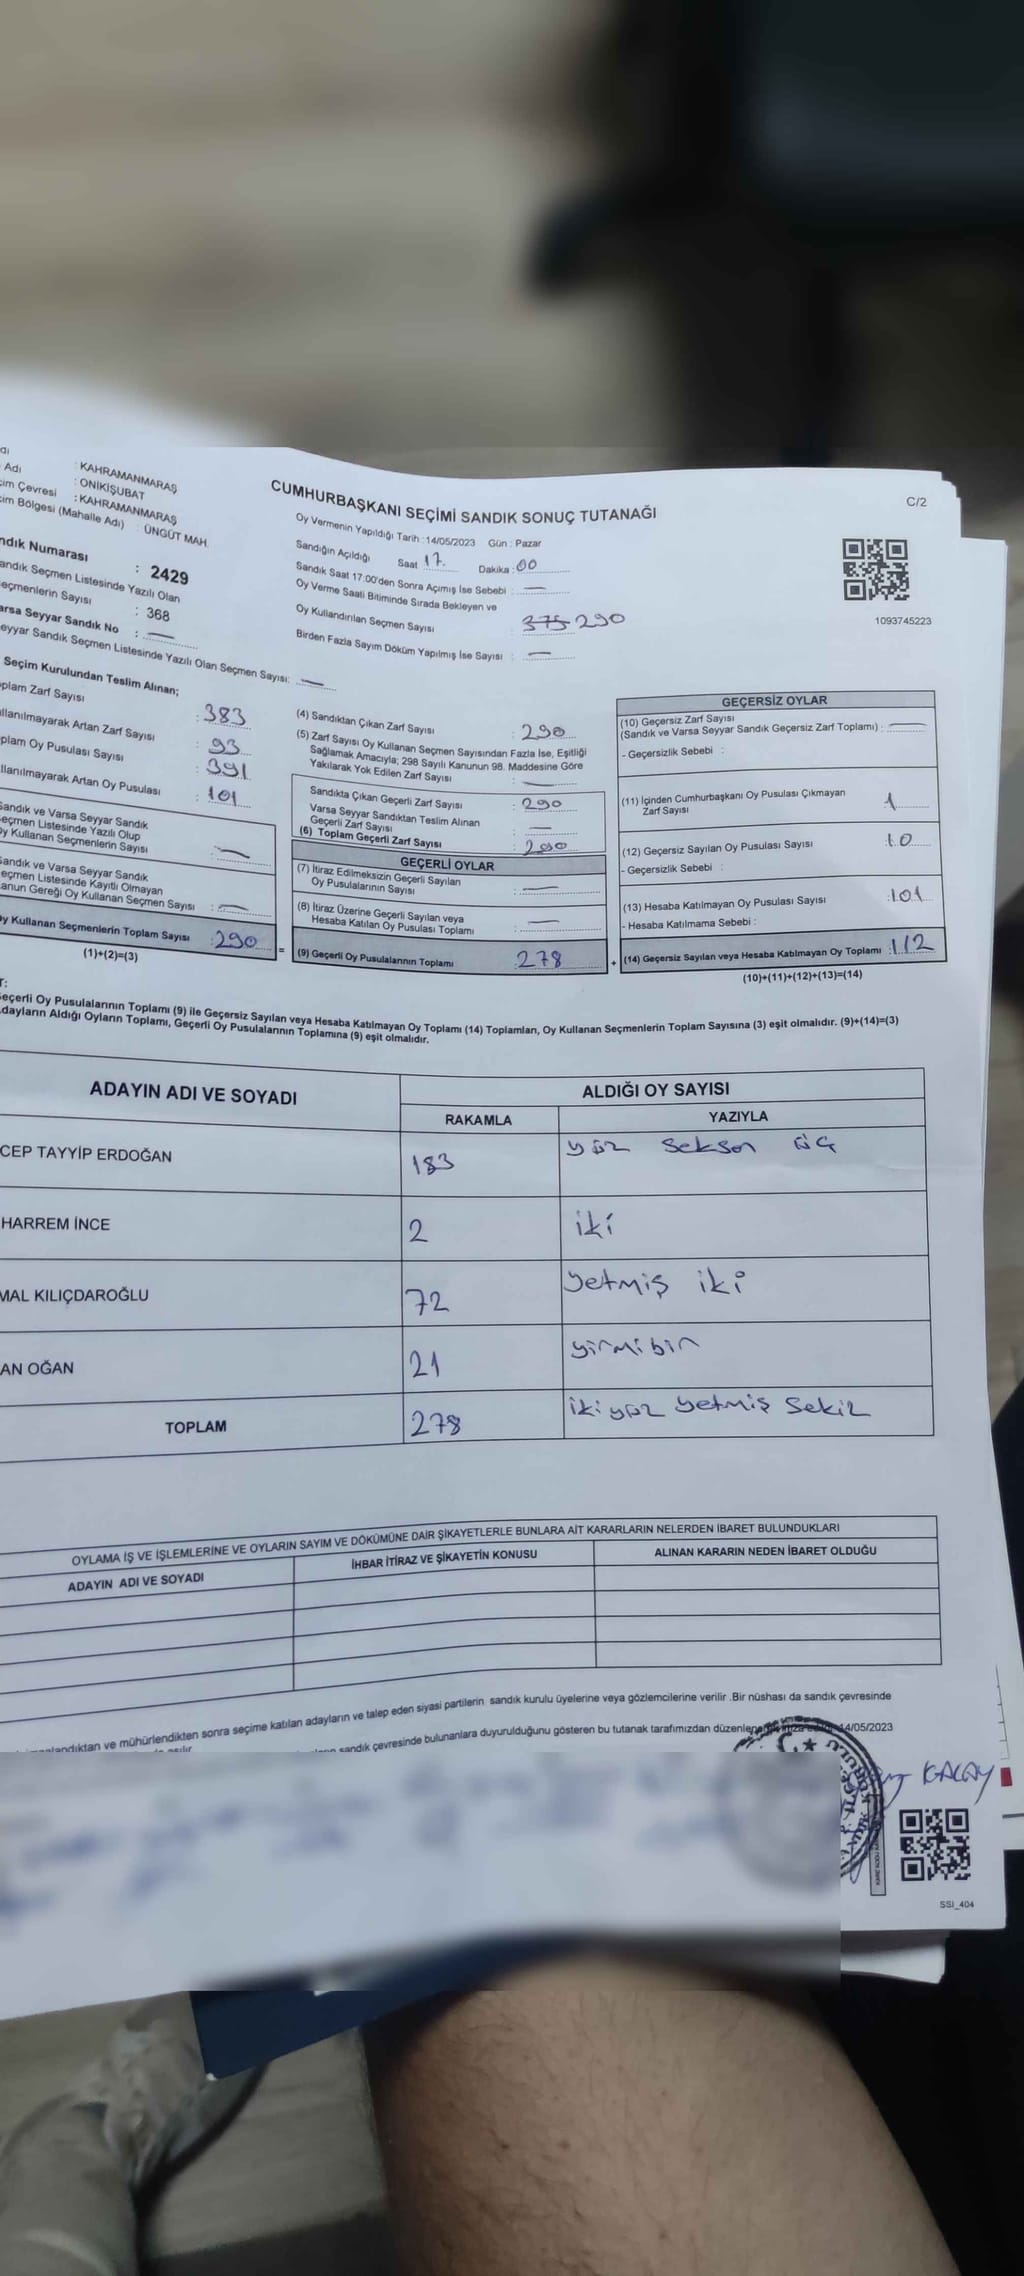 C/2
Adı : KAHRAMANMARAŞ
: ONİKİŞUBAT
çim Çevresi : KAHRAMANMARAŞ
çim Bölgesi (Mahalle Adı) : ÜNGÜT MAH.
ndık Numarası : 2429
andık Seçmen Listesinde Yazılı Olan
eçmenlerin Sayısı : 368
arsa Seyyar Sandık No : —
eyyar Sandık Seçmen Listesinde Yazılı Olan Seçmen Sayısı: —
CUMHURBAŞKANI SEÇİMİ SANDIK SONUÇ TUTANAĞI
Oy Vermenin Yapıldığı Tarih : 14/05/2023 Gün : Pazar
Sandığın Açıldığı Saat 17. Dakika : 00
Sandık Saat 17:00'den Sonra Açımış İse Sebebi : —
Oy Verme Saati Bitiminde Sırada Bekleyen ve
Oy Kullandırılan Seçmen Sayısı : 375 290
Birden Fazla Sayım Döküm Yapılmış İse Sayısı : —
1093745223
Seçim Kurulundan Teslim Alınan;
plam Zarf Sayısı : 383
llanılmayarak Artan Zarf Sayısı : 93
plam Oy Pusulası Sayısı : 391
llanılmayarak Artan Oy Pusulası : 101
Sandık ve Varsa Seyyar Sandık
eçmen Listesinde Yazılı Olup
Oy Kullanan Seçmenlerin Sayısı : —
Sandık ve Varsa Seyyar Sandık
eçmen Listesinde Kayıtlı Olmayan
anun Gereği Oy Kullanan Seçmen Sayısı : —
Oy Kullanan Seçmenlerin Toplam Sayısı : 290
(1)+(2)=(3)
=
(4) Sandıktan Çıkan Zarf Sayısı : 290
(5) Zarf Sayısı Oy Kullanan Seçmen Sayısından Fazla İse, Eşitliği
Sağlamak Amacıyla; 298 Sayılı Kanunun 98. Maddesine Göre
Yakılarak Yok Edilen Zarf Sayısı : —
Sandıkta Çıkan Geçerli Zarf Sayısı : 290
Varsa Seyyar Sandıktan Teslim Alınan
Geçerli Zarf Sayısı : —
(6) Toplam Geçerli Zarf Sayısı : 290
GEÇERLİ OYLAR
(7) İtiraz Edilmeksizin Geçerli Sayılan
Oy Pusulalarının Sayısı : —
(8) İtiraz Üzerine Geçerli Sayılan veya
Hesaba Katılan Oy Pusulası Toplamı : —
(9) Geçerli Oy Pusulalarının Toplamı : 278
+
GEÇERSİZ OYLAR
(10) Geçersiz Zarf Sayısı
(Sandık ve Varsa Seyyar Sandık Geçersiz Zarf Toplamı) : —
- Geçersizlik Sebebi :
(11) İçinden Cumhurbaşkanı Oy Pusulası Çıkmayan
Zarf Sayısı : 1
(12) Geçersiz Sayılan Oy Pusulası Sayısı : 10
- Geçersizlik Sebebi :
(13) Hesaba Katılmayan Oy Pusulası Sayısı : 101
- Hesaba Katılmama Sebebi :
(14) Geçersiz Sayılan veya Hesaba Katılmayan Oy Toplamı : 112
(10)+(11)+(12)+(13)=(14)
T:
eçerli Oy Pusulalarının Toplamı (9) ile Geçersiz Sayılan veya Hesaba Katılmayan Oy Toplamı (14) Toplamları, Oy Kullanan Seçmenlerin Toplam Sayısına (3) eşit olmalıdır. (9)+(14)=(3)
dayların Aldığı Oyların Toplamı, Geçerli Oy Pusulalarının Toplamına (9) eşit olmalıdır.
ADAYIN ADI VE SOYADI ALDIĞI OY SAYISI
RAKAMLA YAZIYLA
CEP TAYYİP ERDOĞAN 183 yüz seksen üç
HARREM İNCE 2 iki
MAL KILIÇDAROĞLU 72 yetmiş iki
AN OĞAN 21 yirmibir
TOPLAM 278 ikiyüz yetmiş sekiz
OYLAMA İŞ VE İŞLEMLERİNE VE OYLARIN SAYIM VE DÖKÜMÜNE DAİR ŞİKAYETLERLE BUNLARA AİT KARARLARIN NELERDEN İBARET BULUNDUKLARI
ADAYIN ADI VE SOYADI İHBAR İTİRAZ VE ŞİKAYETİN KONUSU ALINAN KARARIN NEDEN İBARET OLDUĞU
landıktan ve mühürlendikten sonra seçime katılan adayların ve talep eden siyasi partilerin sandık kurulu üyelerine veya gözlemcilerine verilir .Bir nüshası da sandık çevresinde
sandık çevresinde bulunanlara duyurulduğunu gösteren bu tutanak tarafımızdan düzenlen 14/05/2023
KALAY
SSI_404